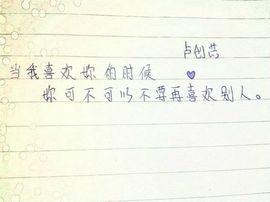 卢创其
当我喜欢妳的时候
妳可不可以不要再喜欢别人。